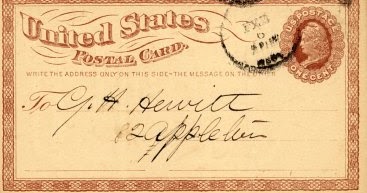 United States
POSTAL CARD.
WRITE THE ADDRESS ONLY ON THIS SIDE-THE MESSAGE ON THE OTHER
U.S. POSTAGE
ONE CENT
To G. H. Hewitt
82 Appleton